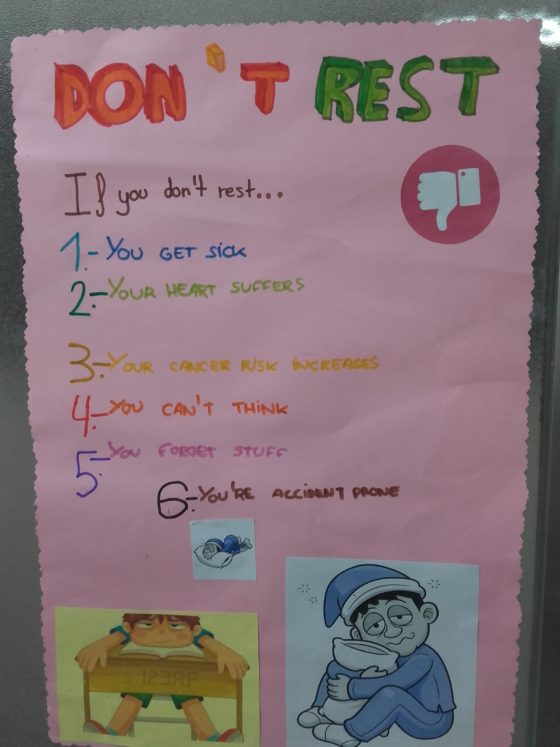 DON'T REST
If you don't rest...
1.- YOU GET SiCK
2.- YOUR HEART SUFFERS
3.- YOUR CANCER RiSK iNCREASES
4.- YOU CAN'T THiNK
5.- YOU FORGET STUFF
6.- YOU'RE ACCIDENT PRONE
123RF